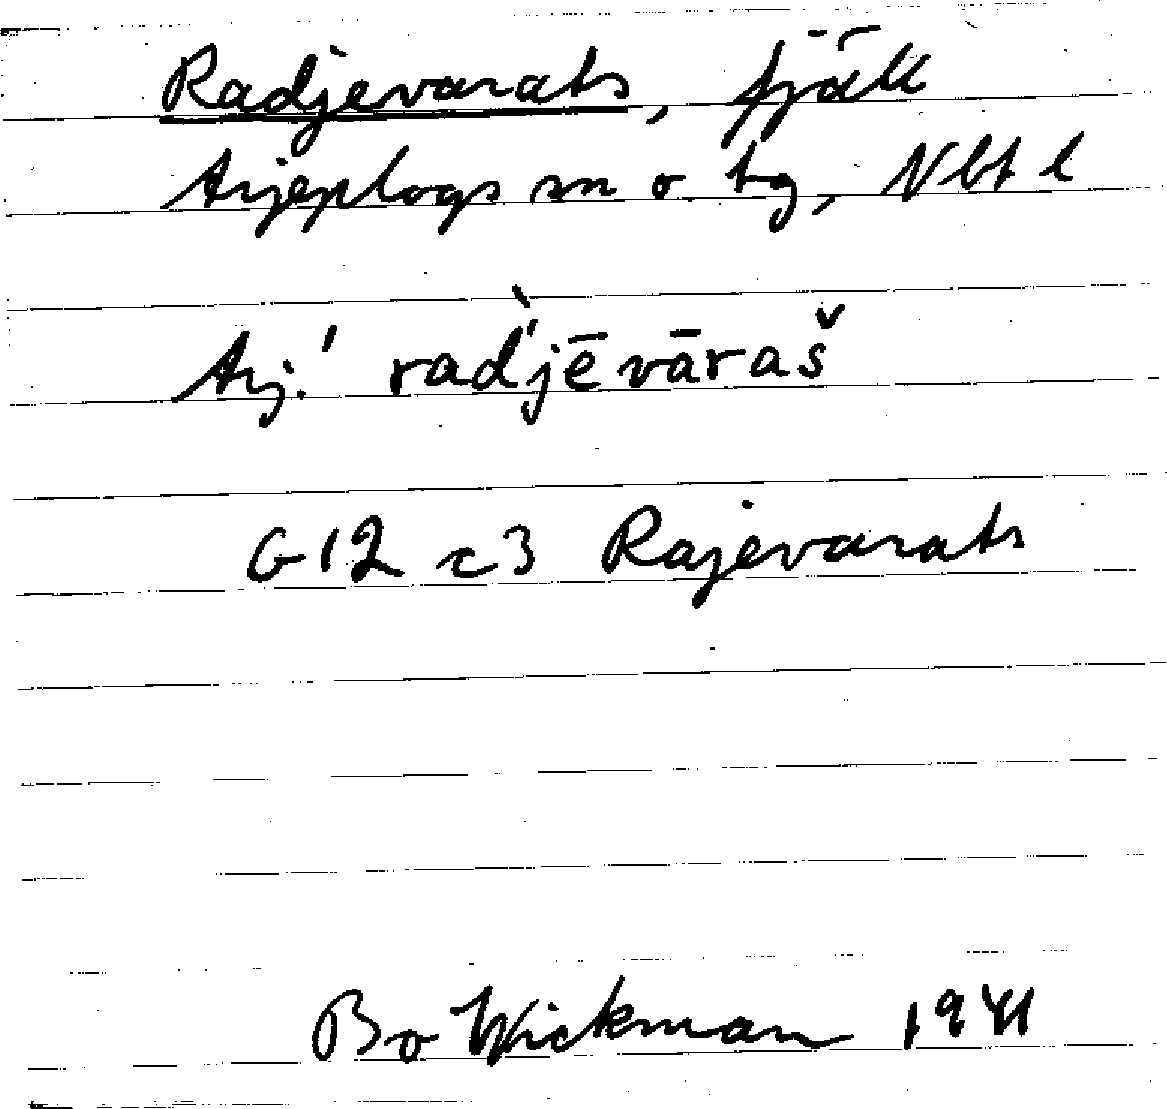 Radjevarats, fjäll
Arjeplogs sn o tg, Nbt l
Arj.' rad'jēvāraš
G12 c3 Rajevarats
Bo Wickman 1941